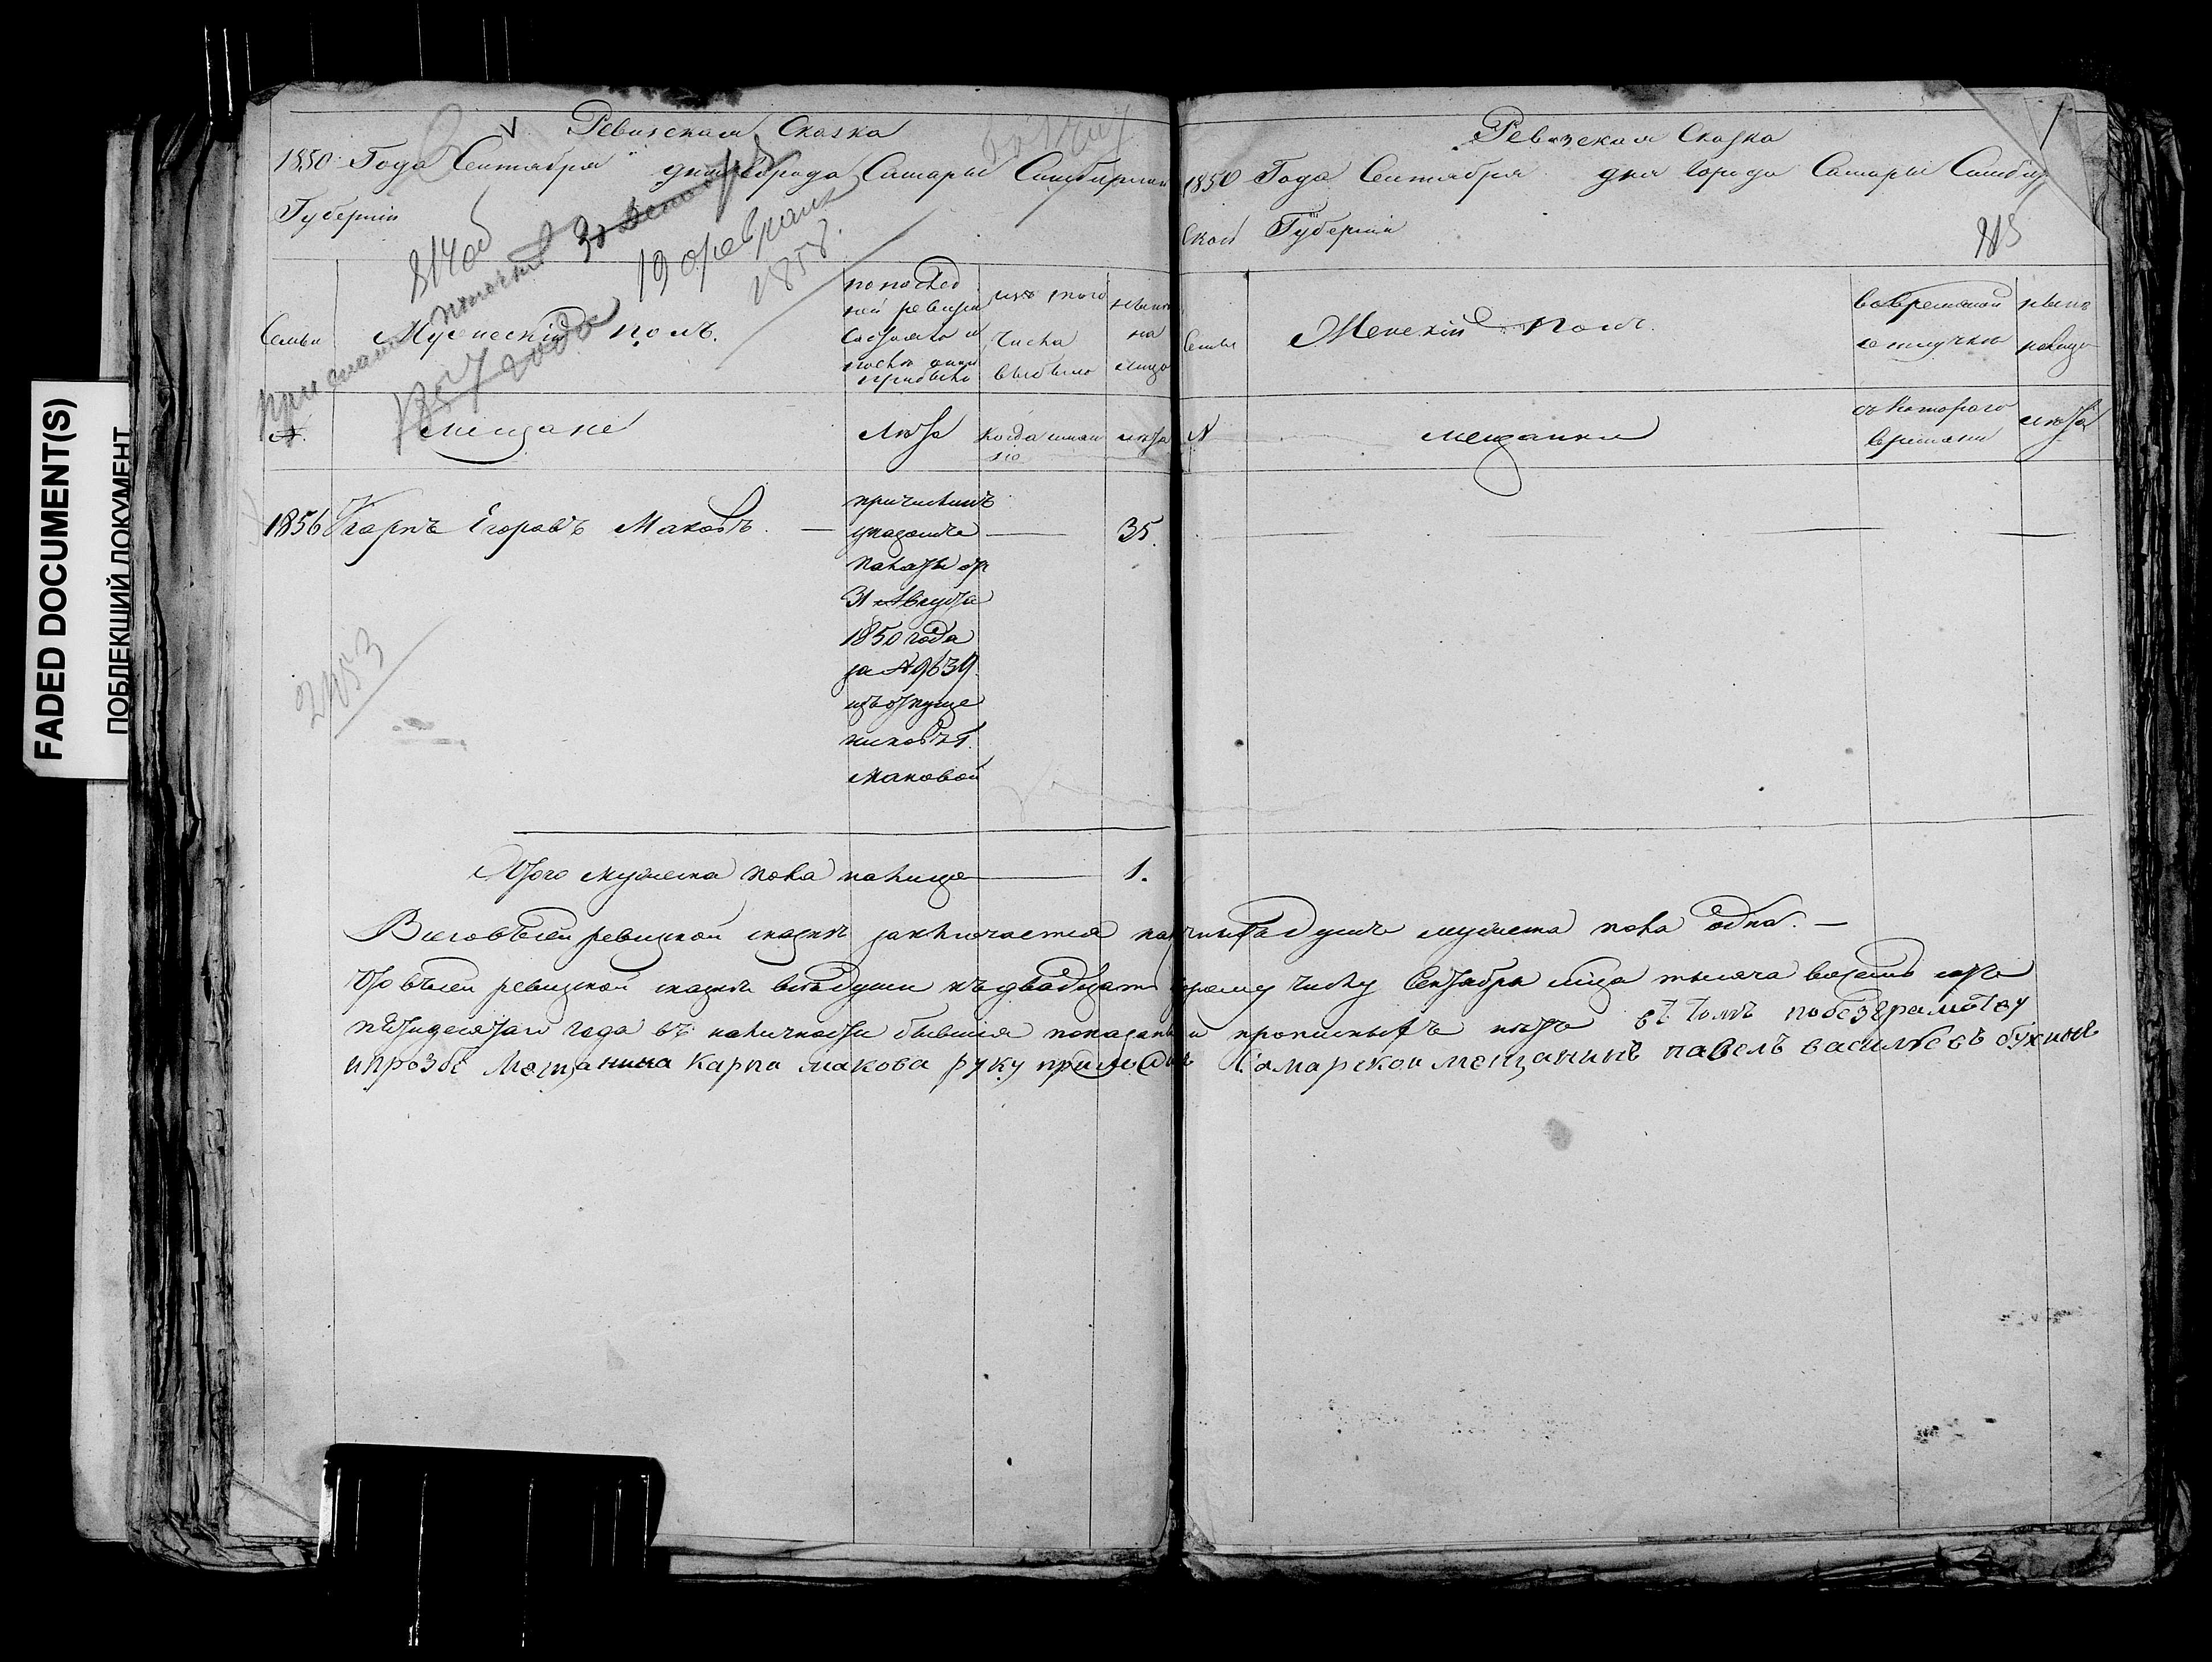 FADED DOCUMENT(S)
ПОБЛЕКШИЙ ДОКУМЕНТ
Ревизская Сказка
1850 Года Сентября дня Города Самары Симбирской
Губернии
814 об
19 февраля
1858.
1857 года
Семьи
Мужеский полъ.
по послед
ней ревизии
состояло и
после оной
прибыло
изъ того
числа
выбыло
ныне
на
лицо
№
мещане
Лета
когда имян
но
лета
1856 Карпъ Егоровъ Маковъ.
причисленъ
указомъ
палаты от
31 Августа
1850 года
за № 9639
изъ отпуще
никовъ г.
Маковой
35.
2453
Итого мужеска пола налицо 1.
Ревизская Сказка
1850 Года Сентября дня Города Самары Симбир
ской Губернии
815
Семьи
Женский Полъ.
во временной
отлучке
ныне
налицо
№
мещанки
съ котораго
времени
лета
Всего въ сей ревизской сказке заключается наличныхъ душъ мужеска пола одна.
Что въ сей ревизской сказке все души къ двадцать второму числу Сентября м-ца тысяча восемь сотъ
пятидесятаго года въ наличности бывшия показаны и прописныхъ нетъ въ томъ побезграмотству
ипрозбе Мещанина Карпа макова руку приложилъ Самарской мещанинъ павелъ василиевъ